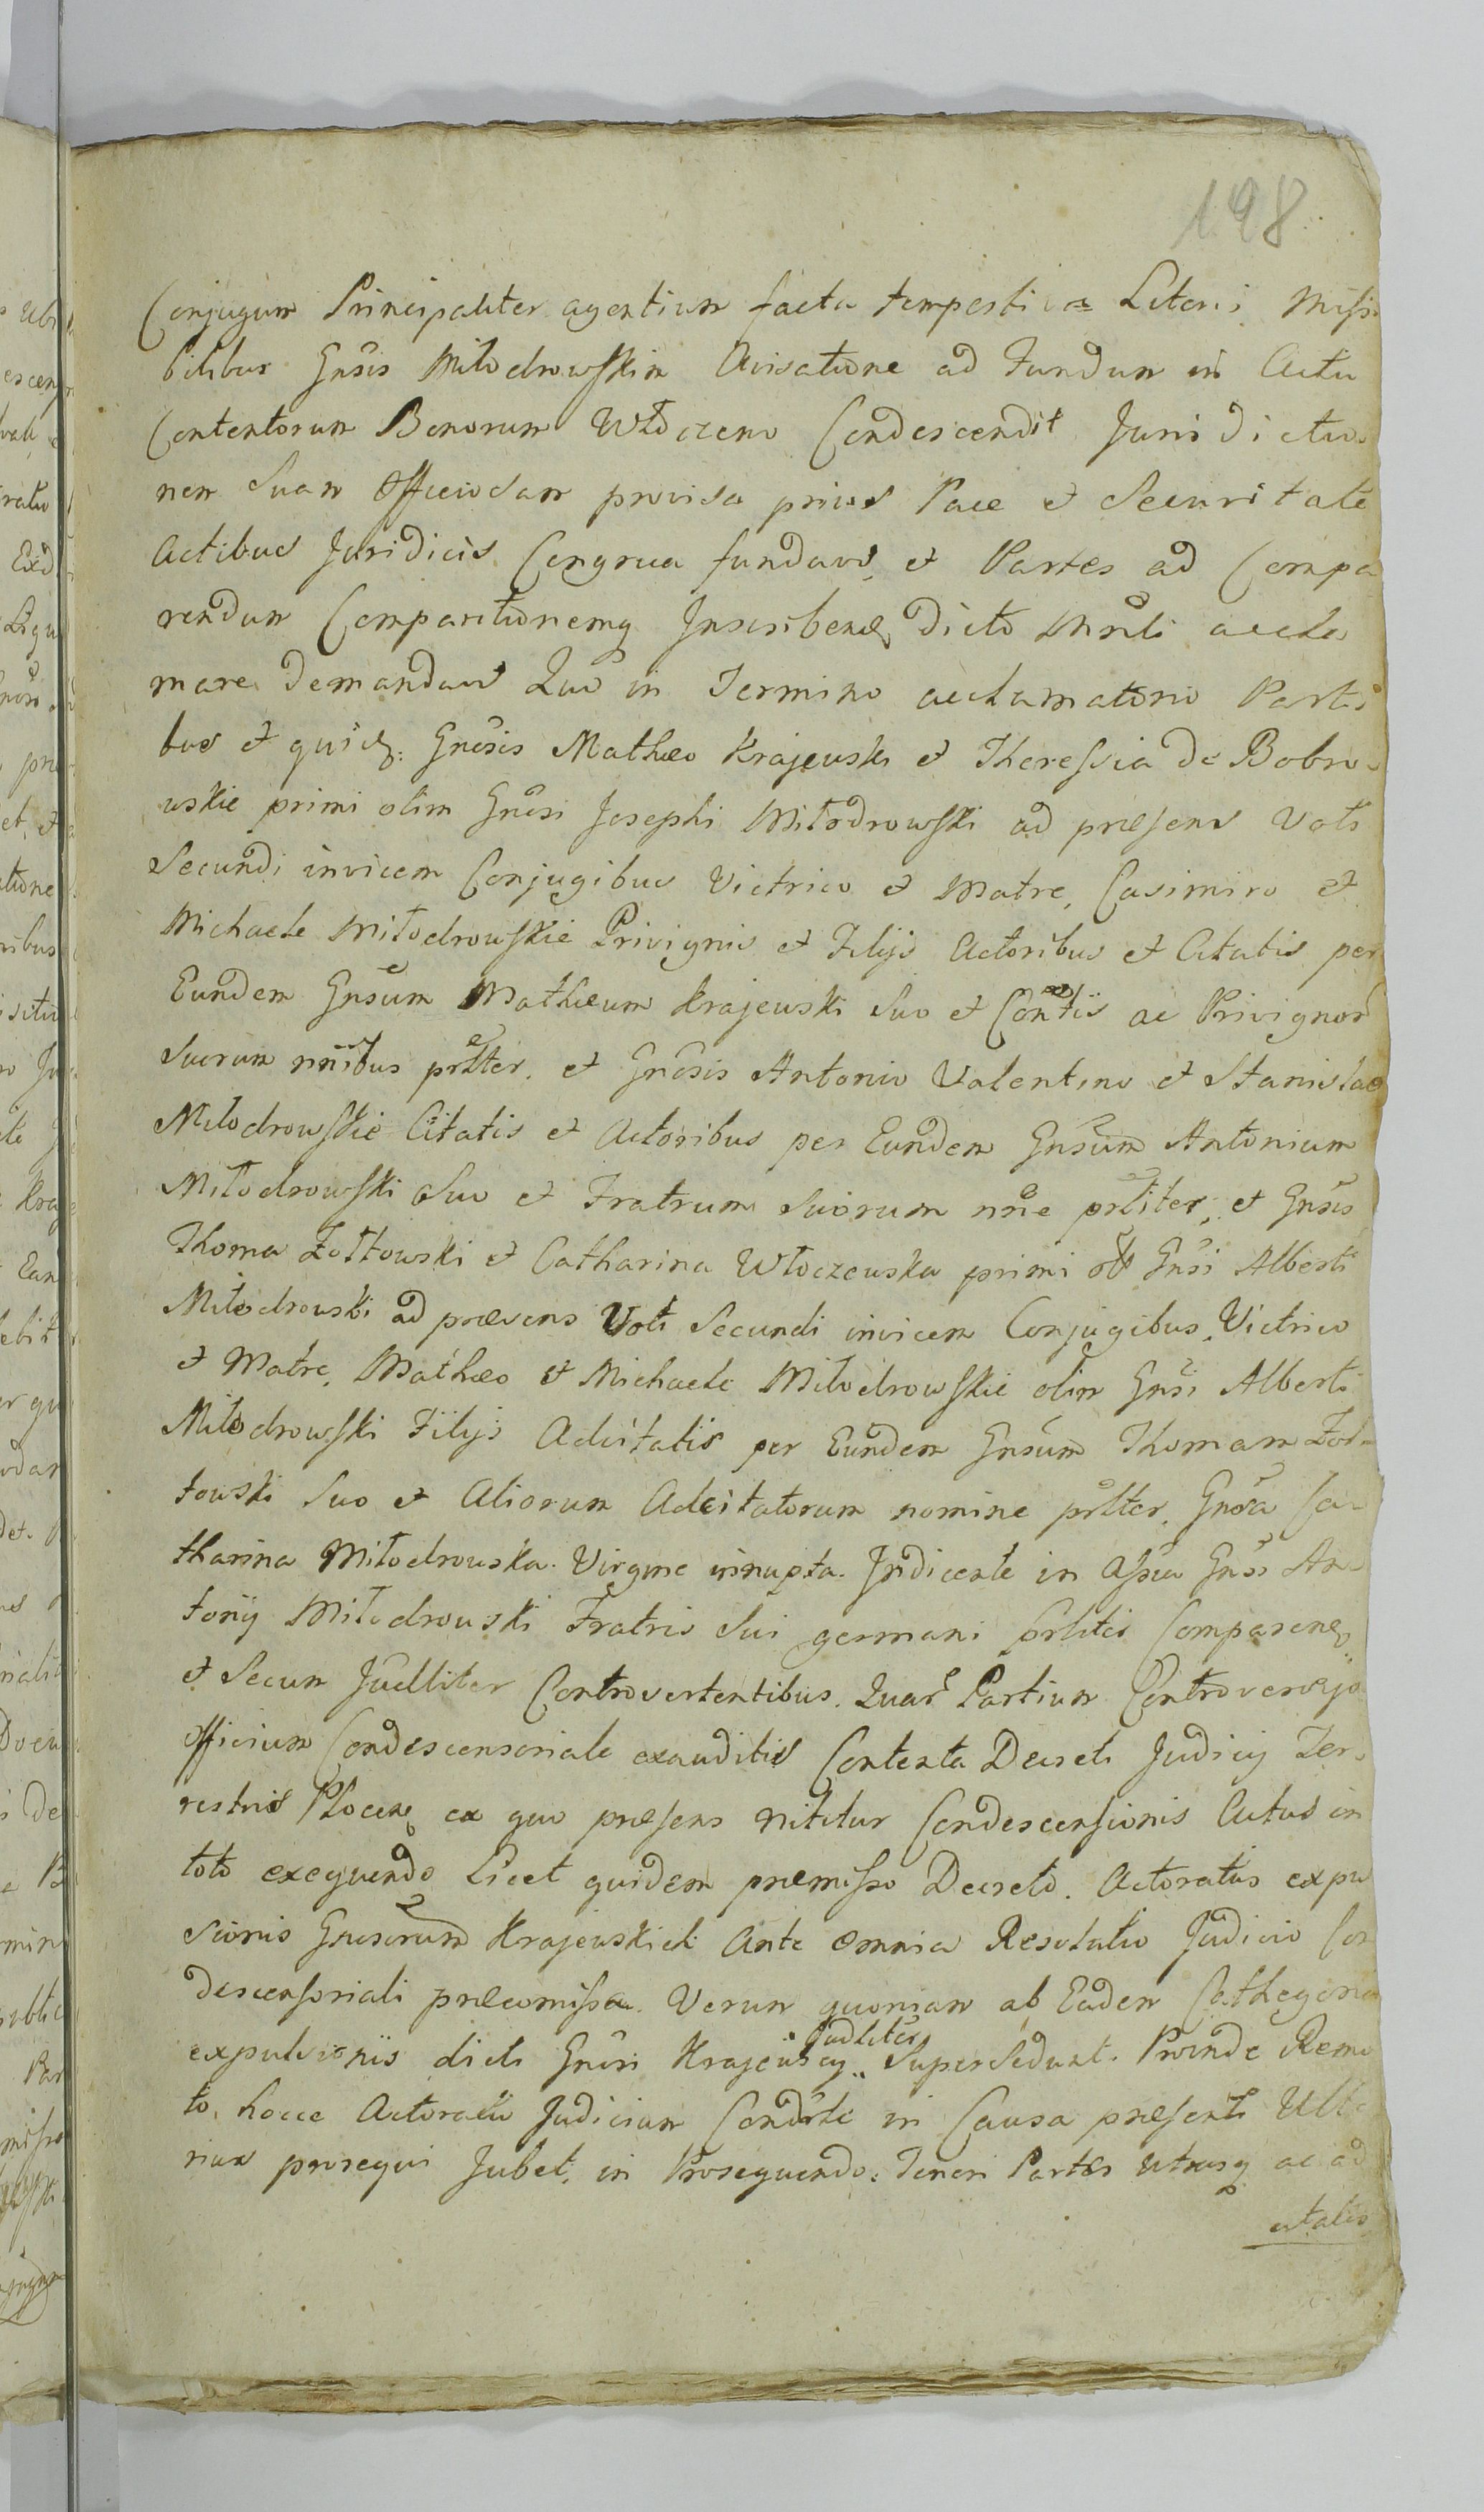 198
Conjugum Principaliter agentium facta tempestive Literis Missi
bilibus Gnsis Miłodrowskim Avisatione ad Fundum in Actu
Contentorum Bonorum Włoczewo Condescendit Jurisdictio
nem Suam Officiosam provisa prius Pace et Securitate
Actibus Juridicis Congrua fundavit, et Partes ad Compa
rendum Comparitionemq Inscribend dicto Mnrli accla
mare demandavit Quo in Termino acclamatorio Parti
bus et quid: Gnosis Mathæo Krajewski et Theressia de Bobro-
wskie primi olim Gnosi Josephi Miłodrowski ad præsens Voti
Secundi invicem Conjugibus Victrico et Matre, Casimiro et
Michaele Miłodrowskie Privignis et Filijs Actoribus et Citatis per
Eundem Gnsum Mathæum Krajewski Suo et Contis ac Privignor
Suorum nnibus prlter. et Gnosis Antonio Valentino et Stanislao
Miłodrowskie Citatis et Actoribus per Eundem Gnsum Antonium
Miłodrowski Suo et Fratrum Suorum nne prliter, et Gnsis
Thoma Żołtowski et Catharina Włoczewska primi olt Gnsi Alberti
Miłodrowski ad præsens Voti Secundi invicem Conjugibus, Victrico
et Matre, Mathæo et Michaele Miłodrowskie olim Gnsi Alberti
Miłodrowski Filijs Adcitatis per Eundem Gnsum Thomam Żoł-
towski Suo et Aliorum Adcitatorum nomine prlter. Gnosa Ca-
tharina Miłodrowska Virgine innupta. Indicente in Assia Gnsi An-
tonij Miłodrowski Fratris Sui germani prliter Comparend
et Secum Judlliter Controvertentibus. Quar Partium Controversijs
Officium Condescensoriale exauditis Contenta Decreti Judicij Ter-
restris Plocen ex quo præsens nititur Condescensionis Actus in
toto exequendo Licet quidem præmisso Decreto. Actoratus expul
sionis Gnosorum Krajewskich Ante Omnia Resolutio Judicio Con
descensoriali præcomissa. Verum quoniam ab Eadem Cathegoria
expulsionis dicti Gnosi Krajewscy Judliter Supersedunt. Proinde Remo
to, hocce Actoratu Judicium Condrle in Causa præsenti Ulte
rius prosequi Jubet, in Prosequendo: Teneri Partes utrasq ac ad
citatis